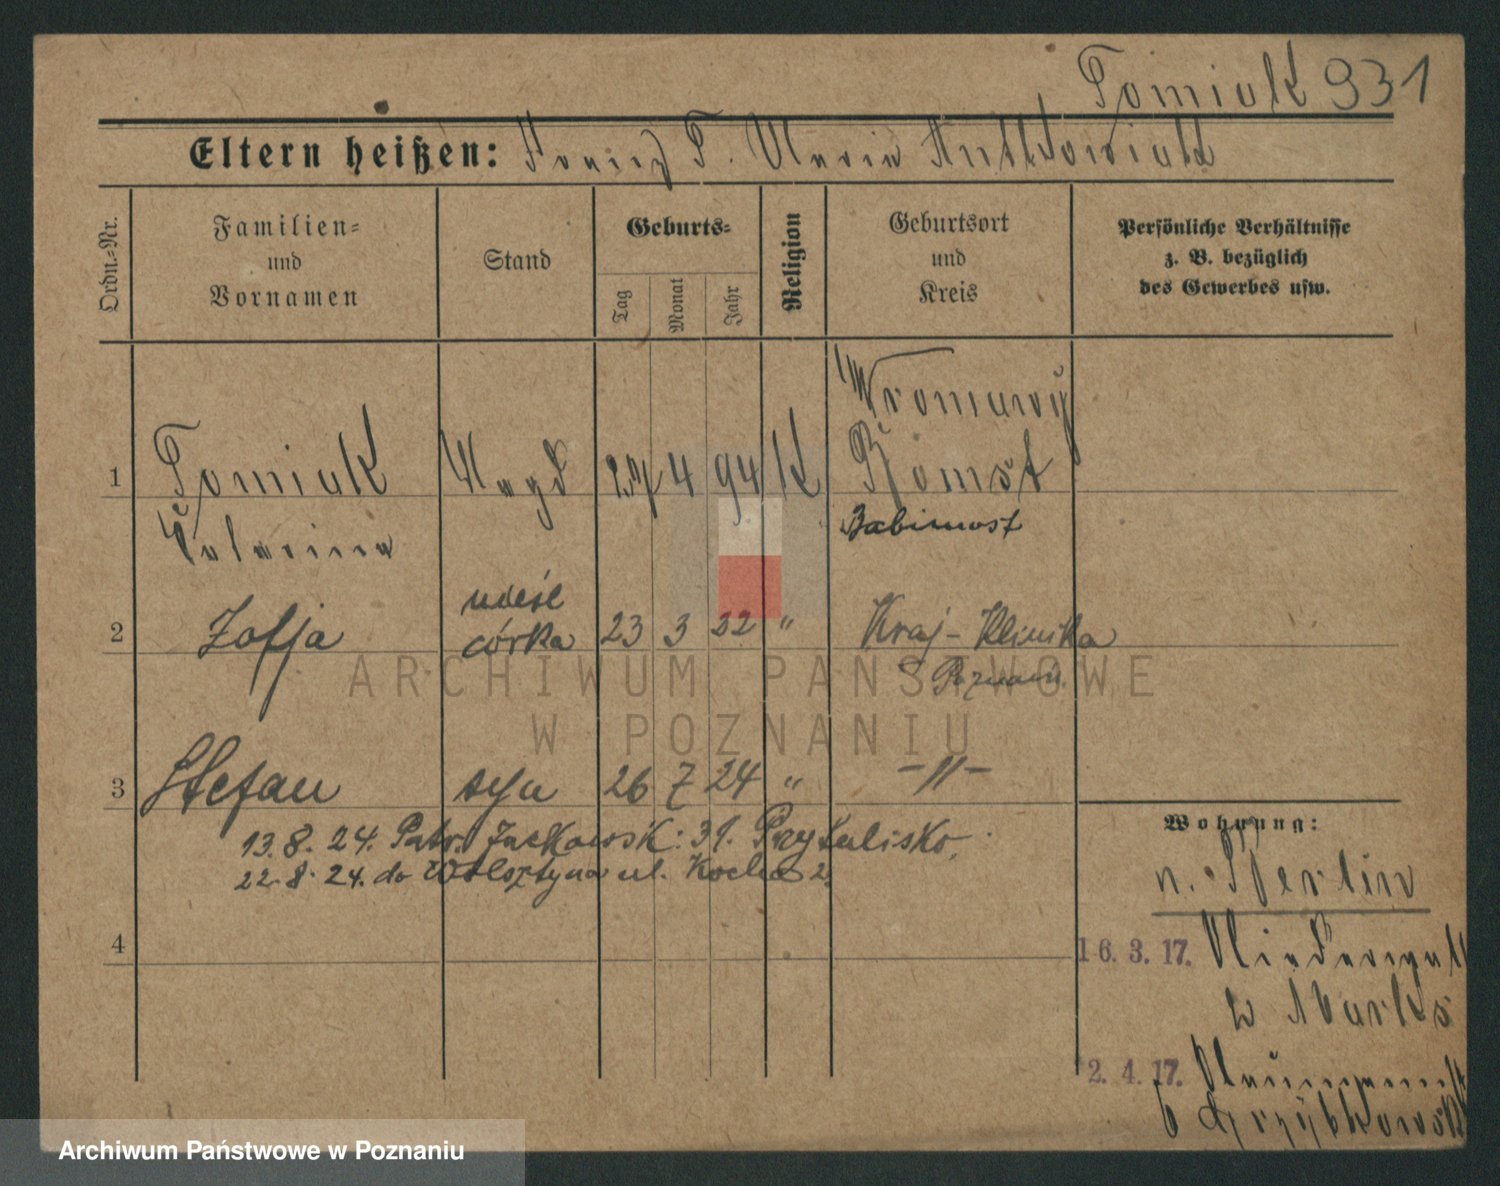 Tomiak 931
Eltern heißen: Franz T. Maria Antkowiak
Ordn.-Nr.
Familien-
und
Vornamen
Stand
Geburts-
Tag
Monat
Jahr
Religion
Geburtsort
und
Kreis
Persönliche Verhältnisse
z. B. bezüglich
des Gewerbes usw.
1
Tomiak
Magd
27 4 94 K
Bomst
Babimost
2
Zofja
córka
23 3 22 "
Kraj-Klinika
Poznań
3
Stefan
syn
26 7 24 "
-"-
13.8.24. Patr. Jackowsk: 31. Przytulisko.
22.8.24. do Wolsztyna ul. Kocha 2.
Wohnung:
n. Berlin
4
16. 3. 17.
b
2. 4. 17.
b Grzybkowski
ARCHIWUM PAŃSTWOWE
W POZNANIU
Archiwum Państwowe w Poznaniu